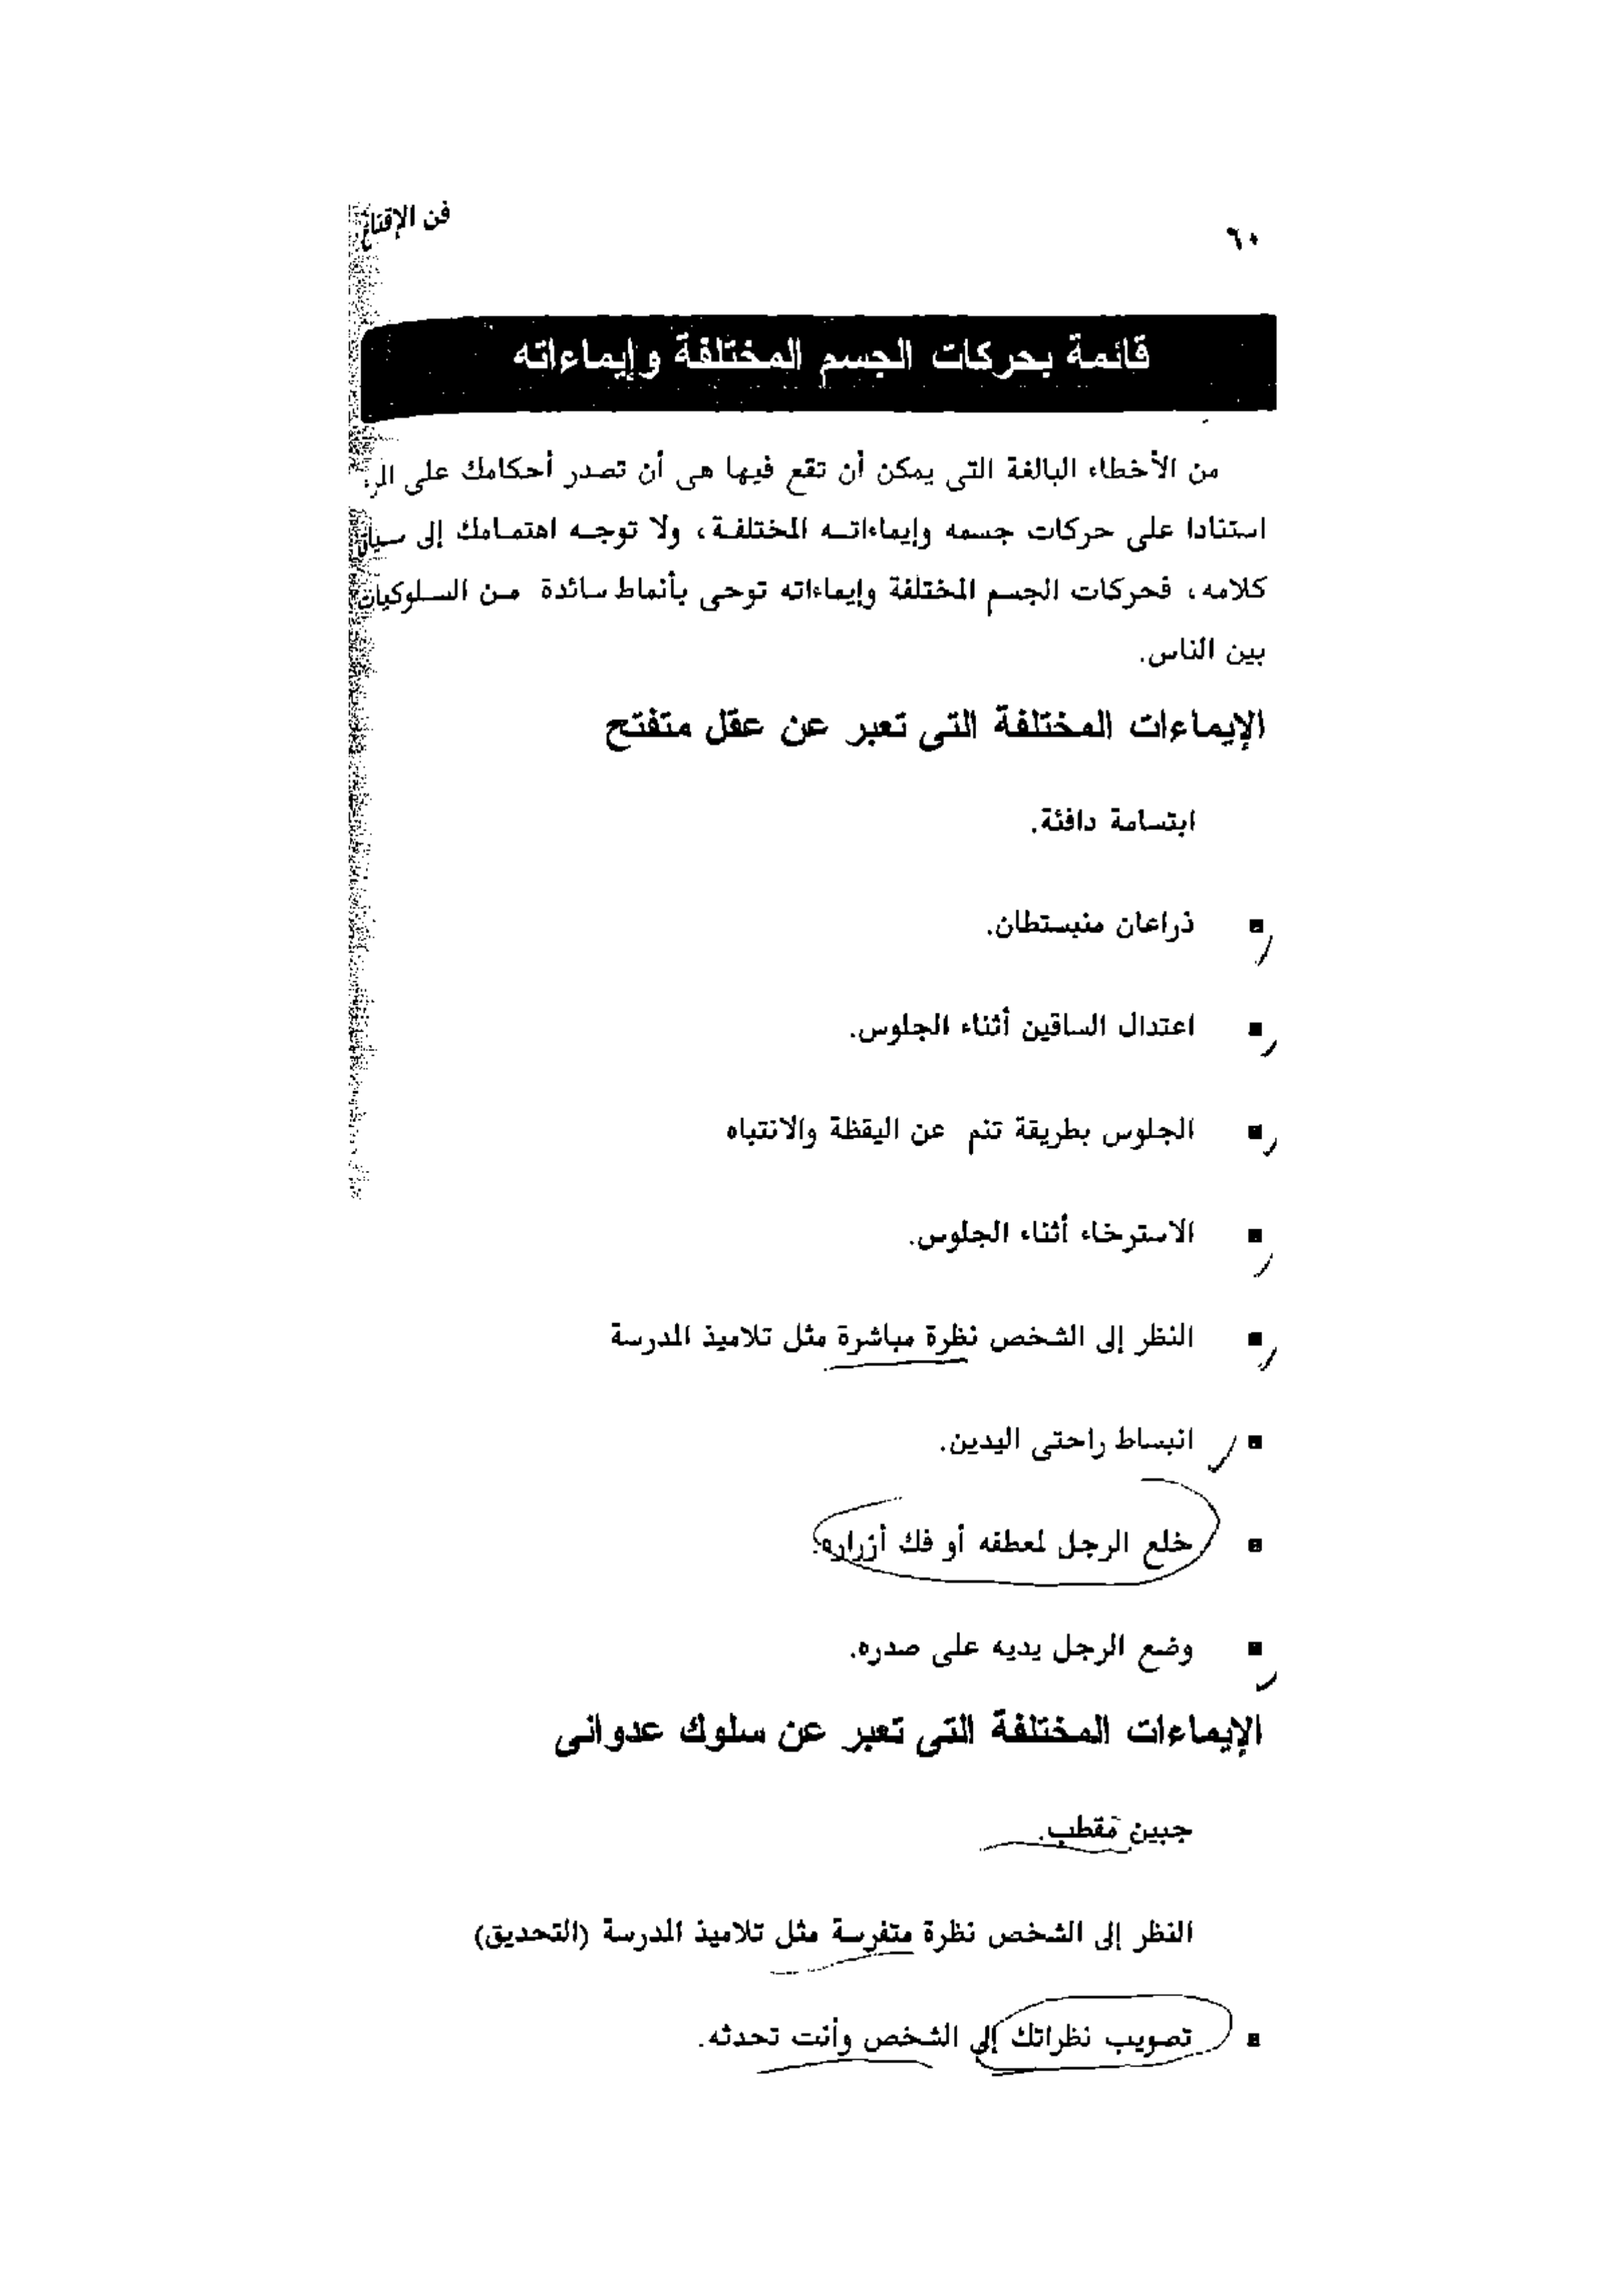 فن الإقناع
٦٠
قائمة بحركات الجسم المختلفة وإيماءاته
من الأخطاء البالغة التى يمكن أن تقع فيها هى أن تصدر أحكامك على
استنادا على حركات جسمه وإيماءاته المختلفة، ولا توجه اهتمامك إلى سياق
كلامه، فحركات الجسم المختلفة وإيماءاته توحى بأنماط سائدة من السلوكيات
بين الناس.
الإيماءات المختلفة التى تعبر عن عقل متفتح
ابتسامة دافئة.
▪ ذراعان منبسطان.
▪ اعتدال الساقين أثناء الجلوس.
▪ الجلوس بطريقة تنم عن اليقظة والانتباه
▪ الاسترخاء أثناء الجلوس.
▪ النظر إلى الشخص نظرة مباشرة مثل تلاميذ المدرسة
▪ انبساط راحتى اليدين.
▪ خلع الرجل لمعطفه أو فك أزراره.
▪ وضع الرجل يديه على صدره.
الإيماءات المختلفة التى تعبر عن سلوك عدوانى
جبين مقطب.
النظر إلى الشخص نظرة متفرسة مثل تلاميذ المدرسة (التحديق)
▪ تصويب نظراتك إلى الشخص وأنت تحدثه.